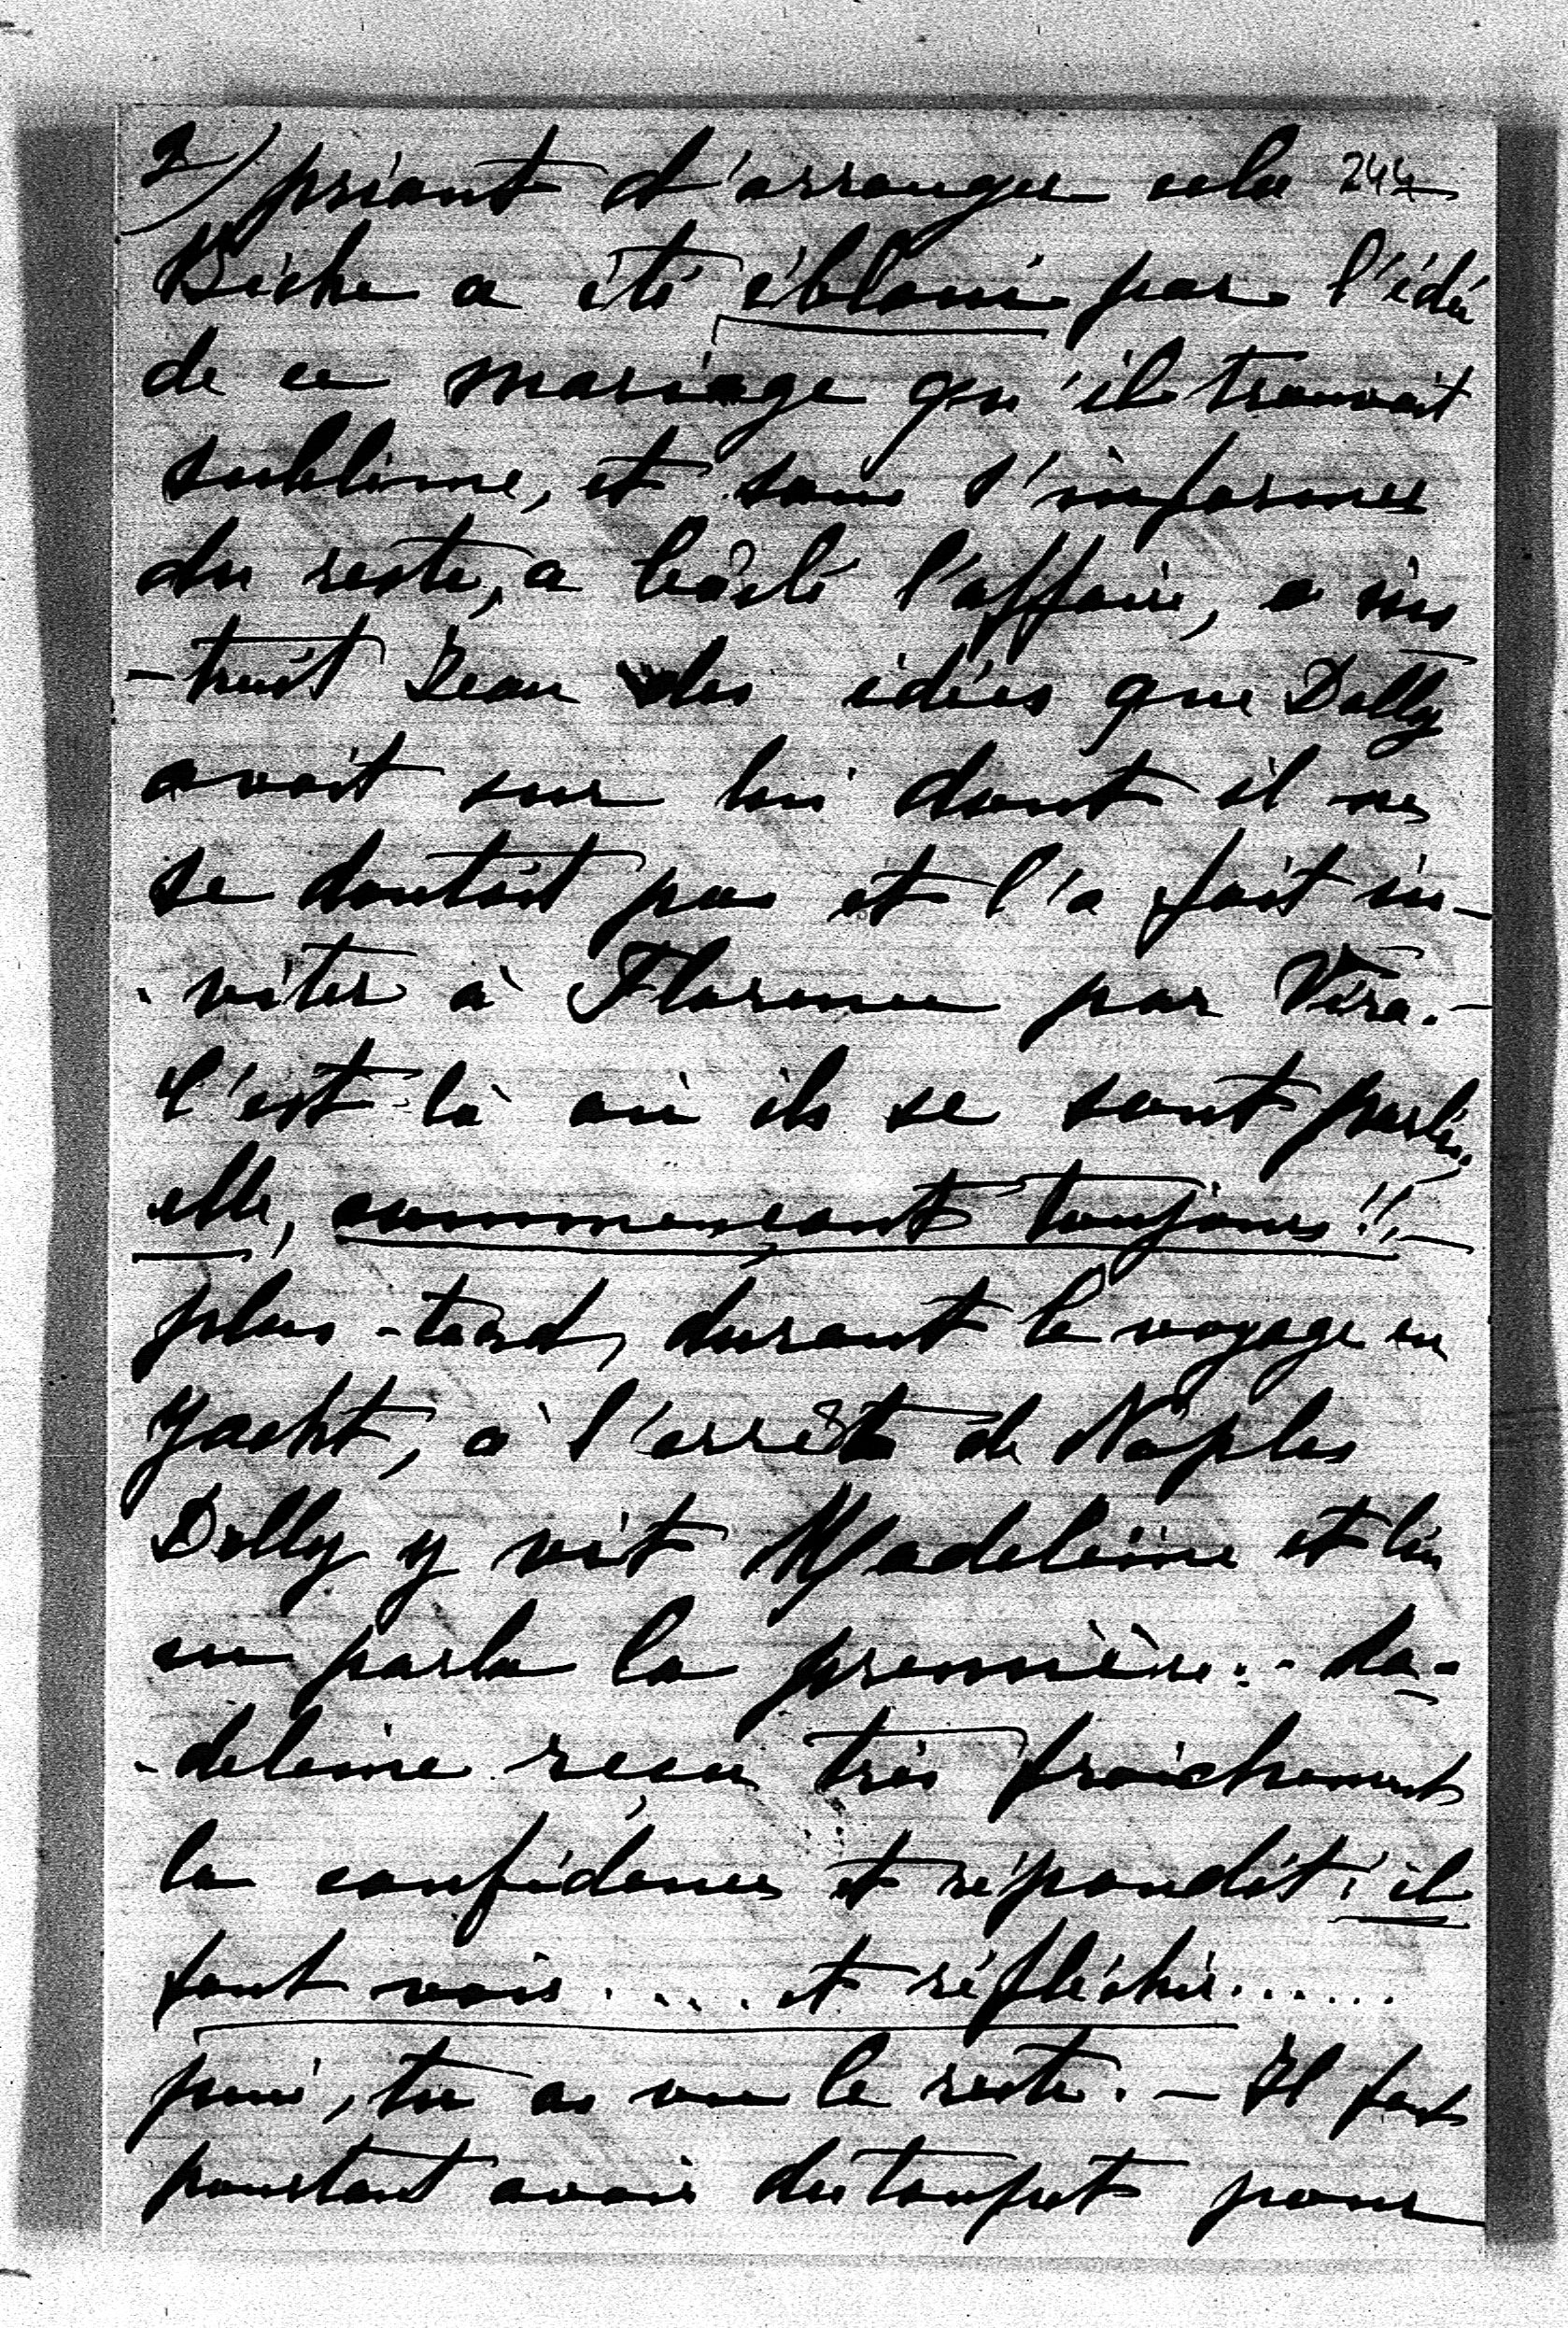 2/ priant d'arranger cela 244
Bicke a été ébloui par l'idée
de ce mariage qu'il trouvait
sublime, et sans s'informer
du reste, a bâclé l'affaire, a ins
-truit Jean des idées que Dolly
avait sur lui dont il ne
se doutait pas et l'a fait in-
-viter à Florence par Véra.-
C'est là où ils se sont parlés.
elle, commençant toujours!!-
plus-tard, durant le voyage en
yacht, à l'arrêt de Naples
Dolly y vit Madeleine et lui
en parla la première.- Ma-
-deleine reçu très fraichement
la confidence et répondit: il
faut voir .... et réfléchir......
puis, tu as vu le reste. - Il faut
pourtant avoir du toupet pour